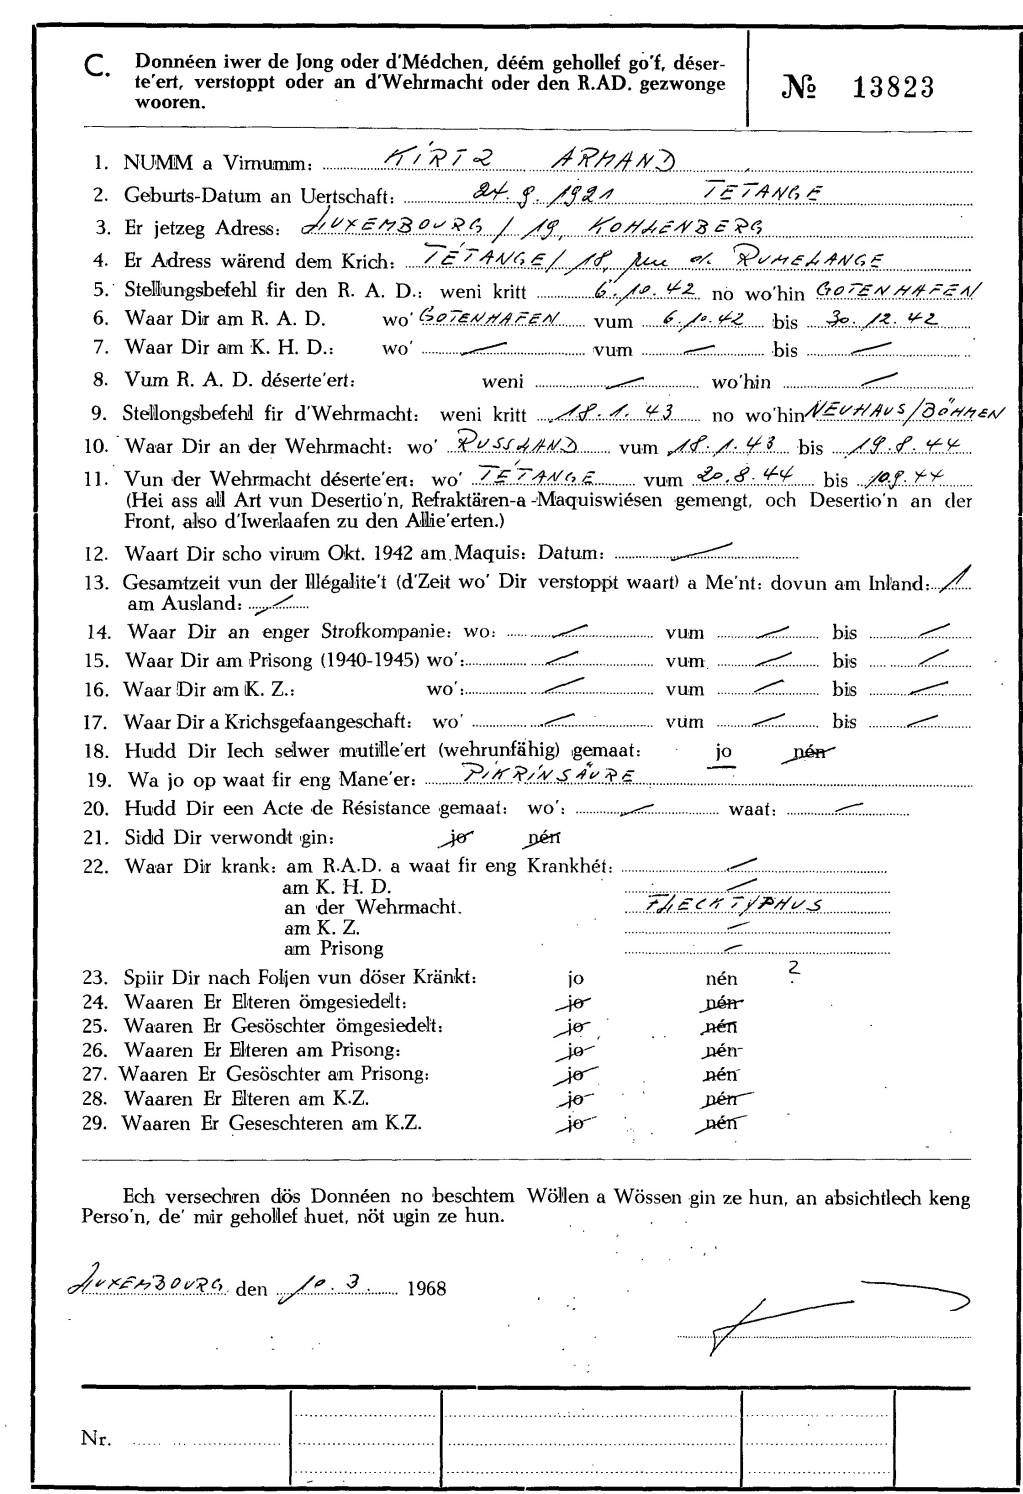 C. Donnéen iwer de Jong oder d'Médchen, déém gehollef go'f, déser-
te'ert, verstoppt oder an d'Wehrmacht oder den R.AD. gezwonge
wooren.
№ 13823
1. NUMM a Virnumm: KIRTZ ARMAND
2. Geburts-Datum an Uertschaft: 24.9.1921 TETANGE
3. Er jetzeg Adress: LUXEMBOURG / 19, KOHLENBERG
4. Er Adress wärend dem Krich: TÉTANGE / 18, rue d. RUMELANGE
5. Stellungsbefehl fir den R. A. D.: weni kritt 6.10.42 no wo'hin GOTENHAFEN
6. Waar Dir am R. A. D. wo' GOTENHAFEN vum 6.10.42 bis 30.12.42
7. Waar Dir am K. H. D.: wo' — vum — bis —
8. Vum R. A. D. déserte'ert: weni — wo'hin —
9. Stellongsbefehl fir d'Wehrmacht: weni kritt 18.1.43 no wo'hin NEUHAUS/BÖHMEN
10. Waar Dir an der Wehrmacht: wo' RUSSLAND vum 18.1.43 bis 19.8.44
11. Vun der Wehrmacht déserte'ert: wo' TÉTANGE vum 20.8.44 bis 10.9.44
(Hei ass all Art vun Desertio'n, Refraktären-a -Maquiswiésen gemengt, och Desertio'n an der
Front, also d'Iwerlaafen zu den Allie'erten.)
12. Waart Dir scho virum Okt. 1942 am Maquis: Datum: —
13. Gesamtzeit vun der Illégalite't (d'Zeit wo' Dir verstoppt waart) a Me'nt: dovun am Inland: 1
am Ausland: —
14. Waar Dir an enger Strofkompanie: wo: — vum — bis —
15. Waar Dir am Prisong (1940-1945) wo': — vum — bis —
16. Waar Dir am K. Z.: wo': — vum — bis —
17. Waar Dir a Krichsgefaangeschaft: wo' — vum — bis —
18. Hudd Dir Iech selwer mutille'ert (wehrunfähig) gemaat: jo nén
19. Wa jo op waat fir eng Mane'er: PIKRINSÄURE
20. Hudd Dir een Acte de Résistance gemaat: wo': — waat: —
21. Sidd Dir verwondt gin: jo nén
22. Waar Dir krank: am R.A.D. a waat fir eng Krankhét: —
am K. H. D. —
an der Wehrmacht. FLECKTYPHUS
am K. Z. —
am Prisong —
23. Spiir Dir nach Foljen vun döser Kränkt: jo nén ?
24. Waaren Er Elteren ömgesiedelt: jo nén
25. Waaren Er Gesöschter ömgesiedelt: jo nén
26. Waaren Er Elteren am Prisong: jo nén
27. Waaren Er Gesöschter am Prisong: jo nén
28. Waaren Er Elteren am K.Z. jo nén
29. Waaren Er Geseschteren am K.Z. jo nén
Ech versechren dös Donnéen no beschtem Wöllen a Wössen gin ze hun, an absichtlech keng
Perso'n, de' mir gehollef huet, nöt ugin ze hun.
LUXEMBOURG den 10.3. 1968
Nr.